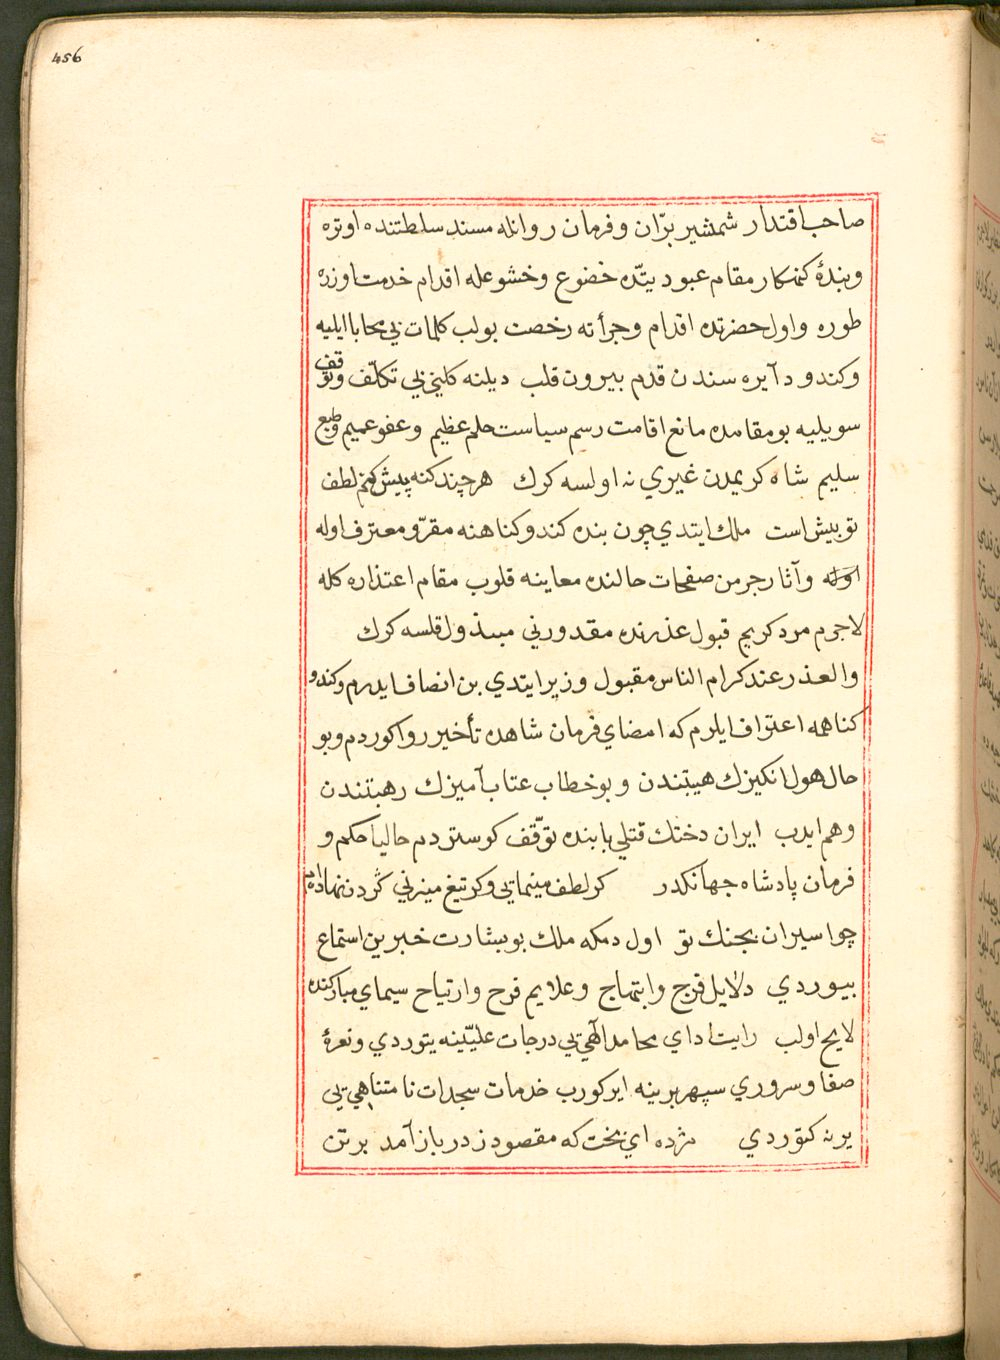 456
صاحب اقتدار شمشیر برّان و فرمان روانله مسند سلطتنده اوتره
و بندۀ كنهكار مقام عبود یتّده خضوع و خشوعله اقدام خدمت اوزره
طوره و اول حضرتده اقدام و جرأته رخصت بولب كلمات بی محابا ایلیه
و كندو دآیره سندن قدم بیرون قلب دیلنه كلینی بی تكلّف و توقف
سویلیه بو مقامده مانع اقامت رسم سیاست حلم عظیم و عفو عمیم و طبع
سلیم شاه كریمدن غیری نه اولسه كرك هر چند كنه پیش كنم لطف
تو بیش است ملك ایتدی چون بنده كندو كناهنه مقرّ و معترف اوله
اوله و آثار جرمن صفحات حالنده معاینه قلوب مقام اعتذاره كله
لاجرم مرد كریم قبول عذرنده مقدورنی مبذول قلسه كرك
والعذر عند كرام الناس مقبول وزیر ایتدی بن انصاف ایدرم و كندو
كناهمه اعتراف ایلرم كه امضای فرمان شاهده تأخیر روا كوردم و بو
حال هول انكیزك هیبتندن و بو خطاب عتاب آمیزك رهبتندن
وهم ایدب ایران دختك قتلی بابنده توّقف كوستردم حالیا حكم و
فرمان پادشاه جهانكدر كر لطف مینمایی و كر تیغ میزنی كردن نهاده‌ایم
چو اسیران بجنك تو اول دمكه ملك بو بشارت خبرین استماع
بیوردی دلایل فرج و ابتهاج و علایم فرح و ارتیاح سیمای مباركنده
لایح اولب رایت ادای محامد الٓهی یی درجات علیّینه یتوردی و نعرۀ
صفا و سروری سپهر برینه ایركورب خدمات سجدات نامتناهی یی
یرنه كتوردی مژده ای بخت كه مقصود ز در باز آمد بر تن